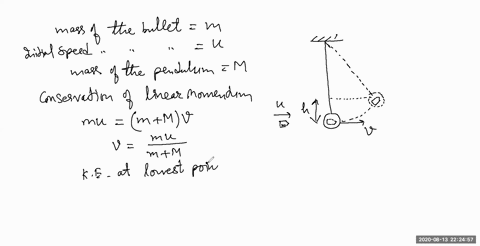 mass of the bullet = m
Initial Speed " " " = u
mass of the pendulum = M
Conservation of linear momentum
mu = (m+M)v
v = mu / m+M
K.E. at lowest poin
u
h
v
2020-08-13 22:24:57